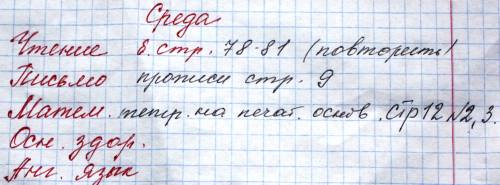 Среда
Чтение б. стр. 78-81 (повторить)
Письмо прописи стр. 9
Матем. тетр. на печат. основ. стр 12 №2, 3.
Осн. здор.
Анг. язык